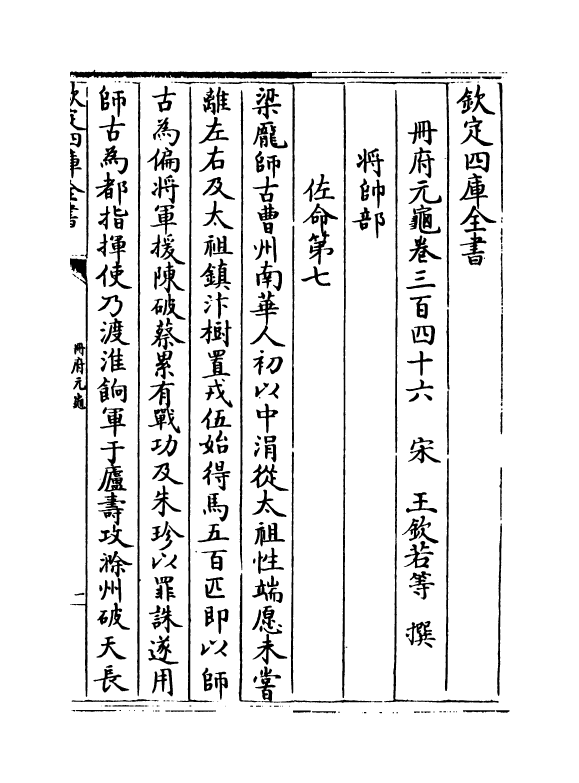 欽定四庫全書
冊府元龜卷三百四十六　宋　王欽若等　撰
將帥部
佐命第七
梁龎師古曹州南華人初以中涓從太祖性端愿未嘗
離左右及太祖鎮汴樹置戎伍始得馬五百匹即以師
古為偏將軍援陳破蔡累有戰功及朱珍以罪誅遂用
師古為都指揮使乃渡淮餉軍于廬壽攻滁州破天長
欽定四庫全書
冊府元龜